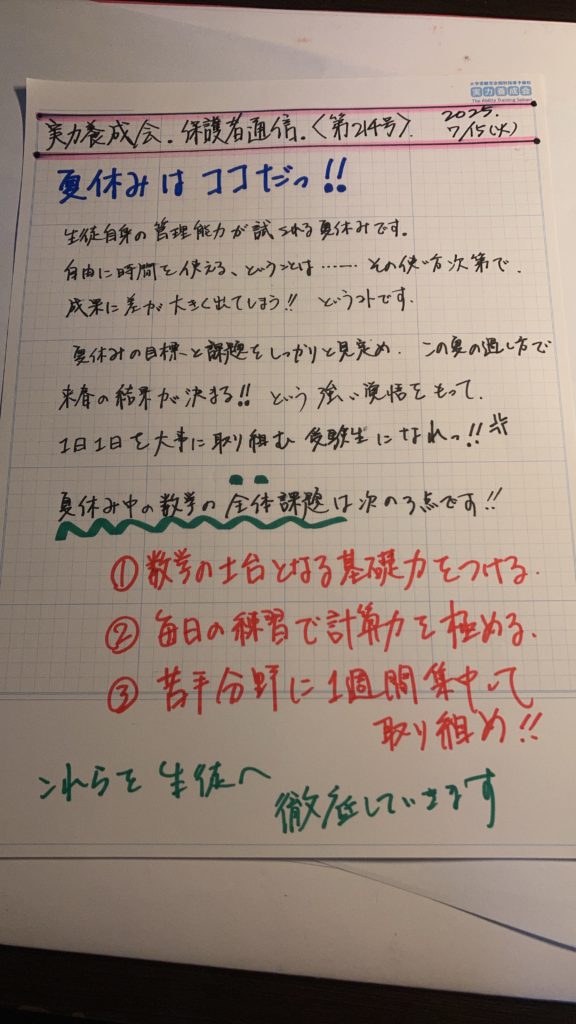 大学受験完全個別指導予備校
実力養成会
The Ability Training Seiwan
実力養成会．保護者通信．〈第214号〉．
2025.
7/15(火)
夏休みは ココだっ!!
生徒自身の管理能力が試される夏休みです。
自由に時間を使える、ということは…… その使い方次第で、
成果に差が大きく出てしまう!! というコトです．
夏休みの目標と課題をしっかりと見定め、この夏の過し方で
来春の結果が決まる!! という強い覚悟をもって、
1日1日を大事に取り組む 受験生になれっ!!
夏休み中の数学の全体課題は次の3点です!!
① 数学の土台となる基礎力をつける．
② 毎日の練習で計算力を極める．
③ 苦手分野に1週間集中して
取り組め!!
これらを生徒へ
徹底していきます